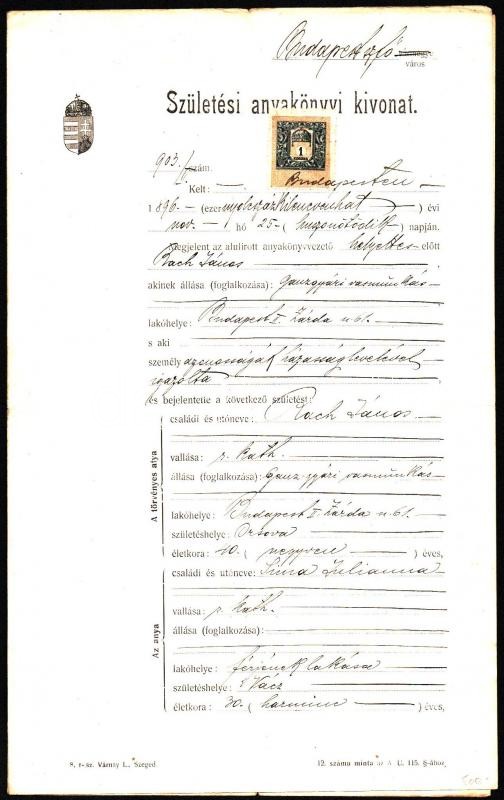 Budapest székesfő
város
Születési anyakönyvi kivonat.
1
903./ szám.
Kelt: — Budapesten
1896 — (ezernyolczázkilenczvenhat) évi
nov. — hó 25 — (huszonötödik) napján.
Megjelent az alulirott anyakönyvvezető helyettes előtt
Bach János
akinek állása (foglalkozása): Ganzgyári vasmunkás
lakóhelye: Budapest II Zárda u 61.
s aki
személy azonosságát házasságlevelével
igazolta
és bejelentette a következő születést:
A törvényes atya
családi és utóneve: Bach János
vallása: r. kath.
állása (foglalkozása): Ganz gyári vasmunkás
lakóhelye: Budapest II Zárda u 61.
születéshelye: Orsova
életkora: 40. (negyven) éves,
Az anya
családi és utóneve: Sima Julianna
vallása: r. kath.
állása (foglalkozása):
lakóhelye: férjének lakása
születéshelye: Vácz
életkora: 30. (harmincz) éves,
8. r-sz. Várnay L., Szeged
12. számú minta az A. U. 115. §-ához.